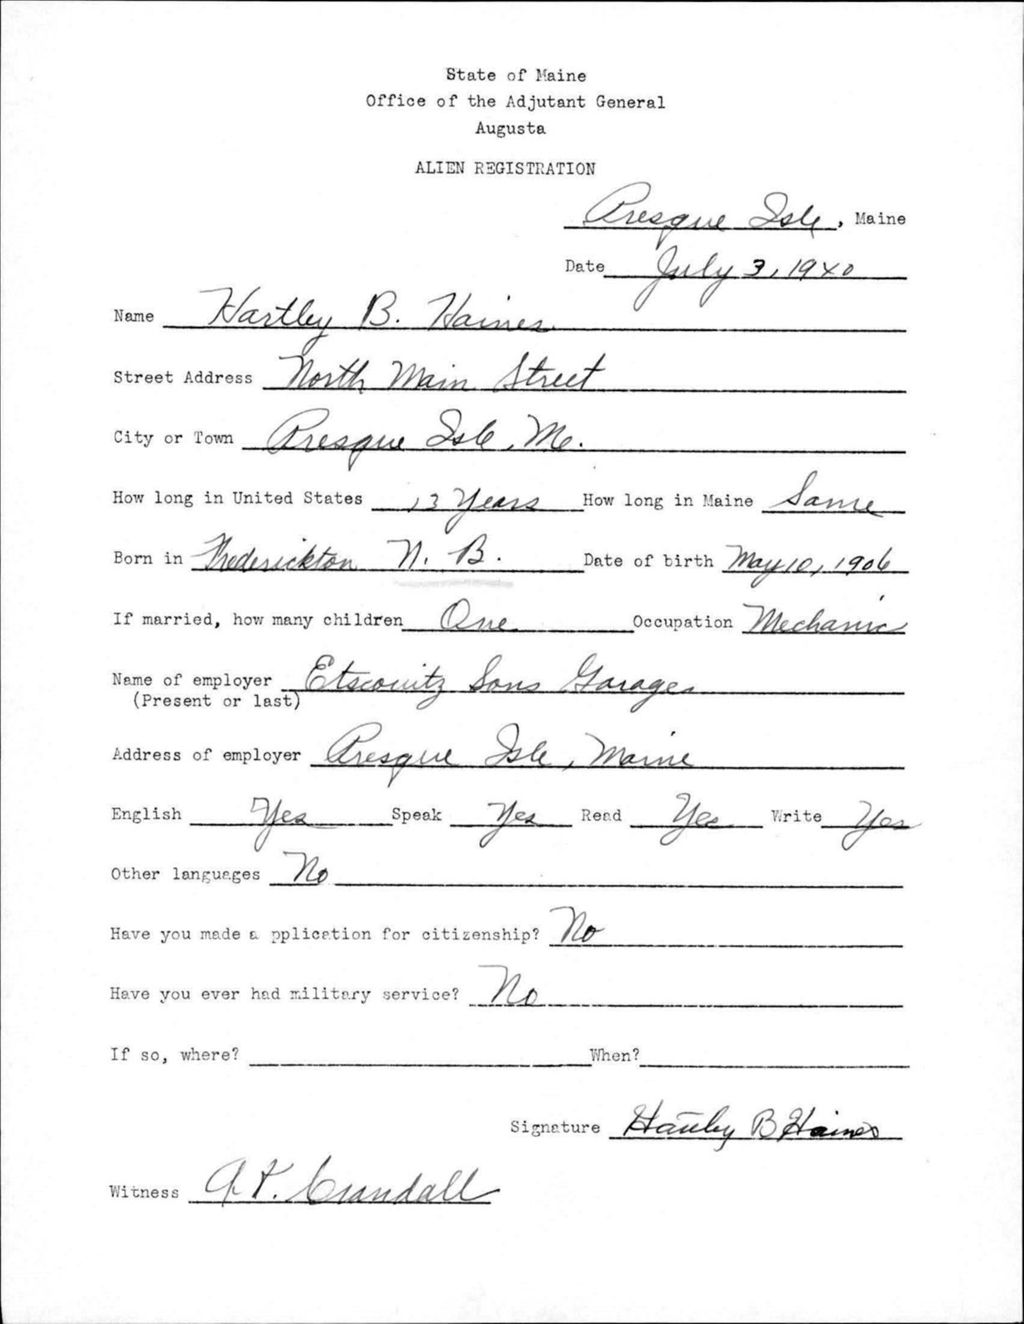 State of Maine
Office of the Adjutant General
Augusta
ALIEN REGISTRATION
Presque Isle, Maine
Date July 3, 1940
Name Hartley B. Haines
Street Address North Main Street
City or Town Presque Isle, Me.
How long in United States 13 Years How long in Maine Same
Born in Frederickton N. B. Date of birth May 10, 1906
If married, how many children One Occupation Mechanic
Name of employer Etscovitz Sons Garage
(Present or last)
Address of employer Presque Isle, Maine
English Yes Speak Yes Read Yes Write Yes
Other languages No
Have you made a pplication for citizenship? No
Have you ever had military service? No
If so, where? When?
Signature Hartley B Haines
Witness Crandall